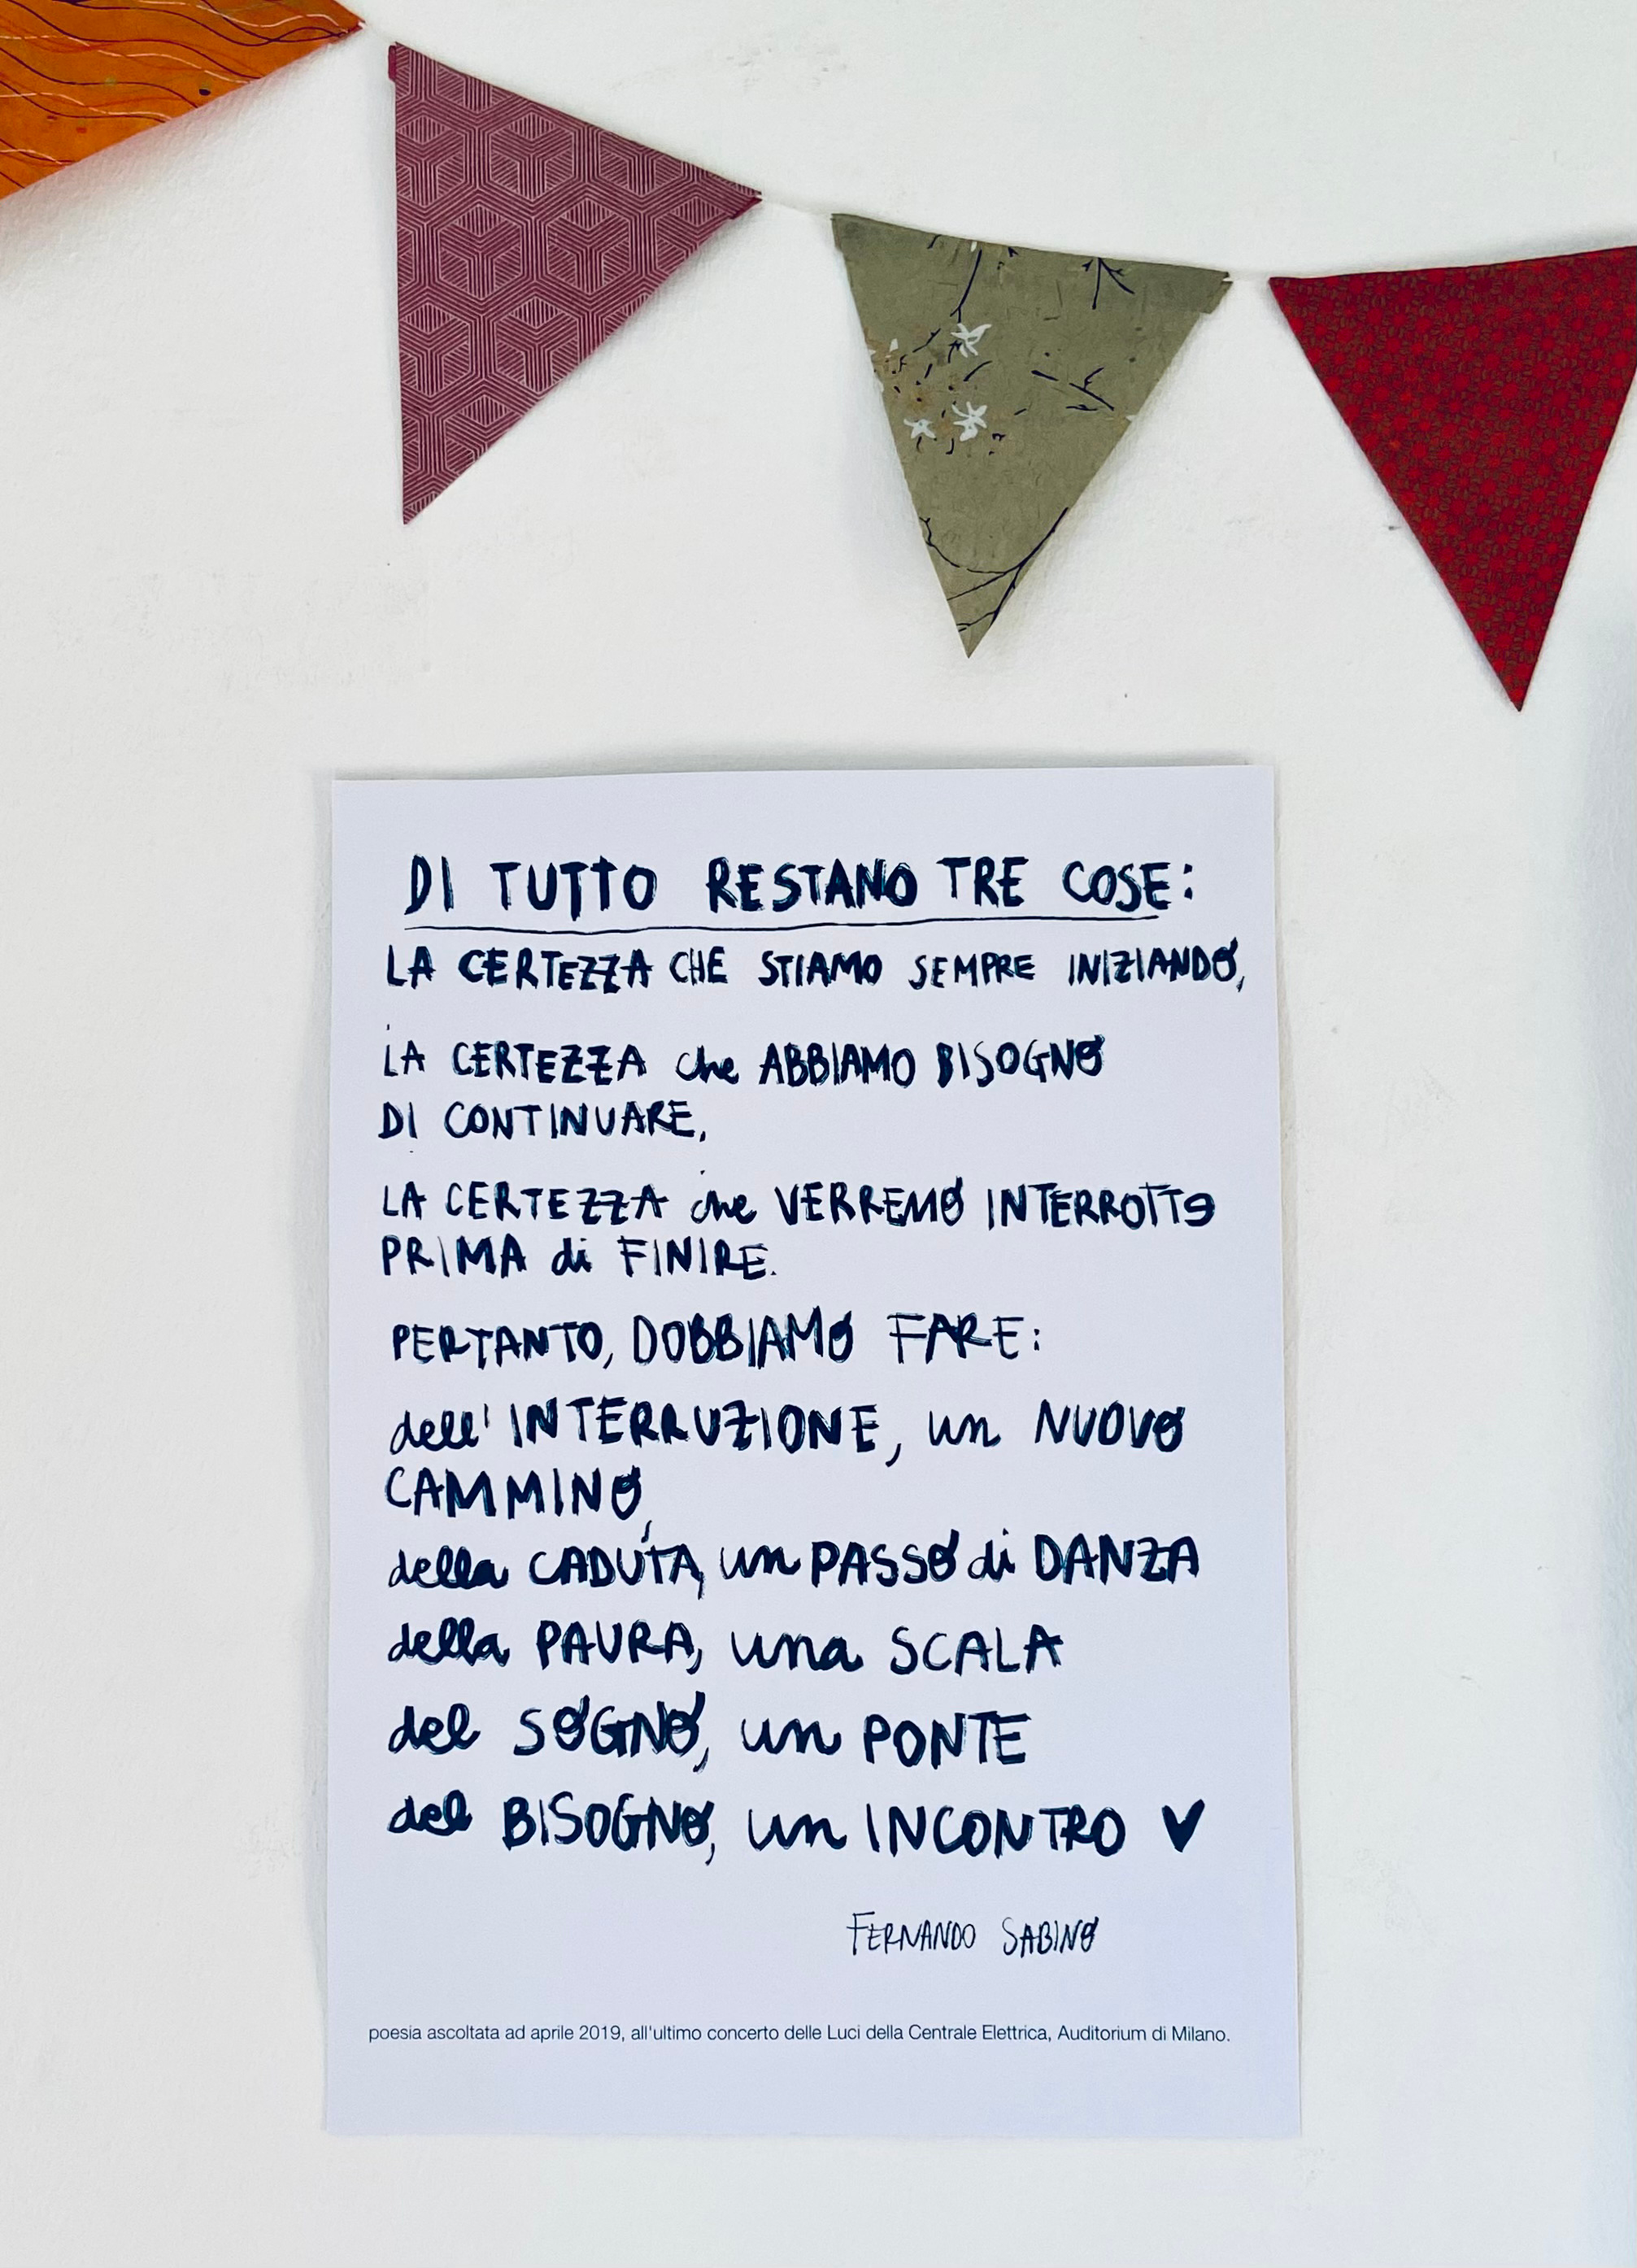 DI TUTTO RESTANO TRE COSE:
LA CERTEZZA CHE STIAMO SEMPRE INIZIANDO,
LA CERTEZZA che ABBIAMO BISOGNO
DI CONTINUARE,
LA CERTEZZA che VERREMO INTERROTTə
PRIMA di FINIRE.
PERTANTO, DOBBIAMO FARE:
dell'INTERRUZIONE, un NUOVO
CAMMINO,
della CADUTA, un PASSO di DANZA
della PAURA, una SCALA
del SOGNO, un PONTE
del BISOGNO, un INCONTRO ♥
FERNANDO SABINO
poesia ascoltata ad aprile 2019, all'ultimo concerto delle Luci della Centrale Elettrica, Auditorium di Milano.